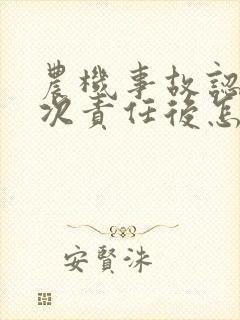 農機事故認
次責任後怎
安賢洙